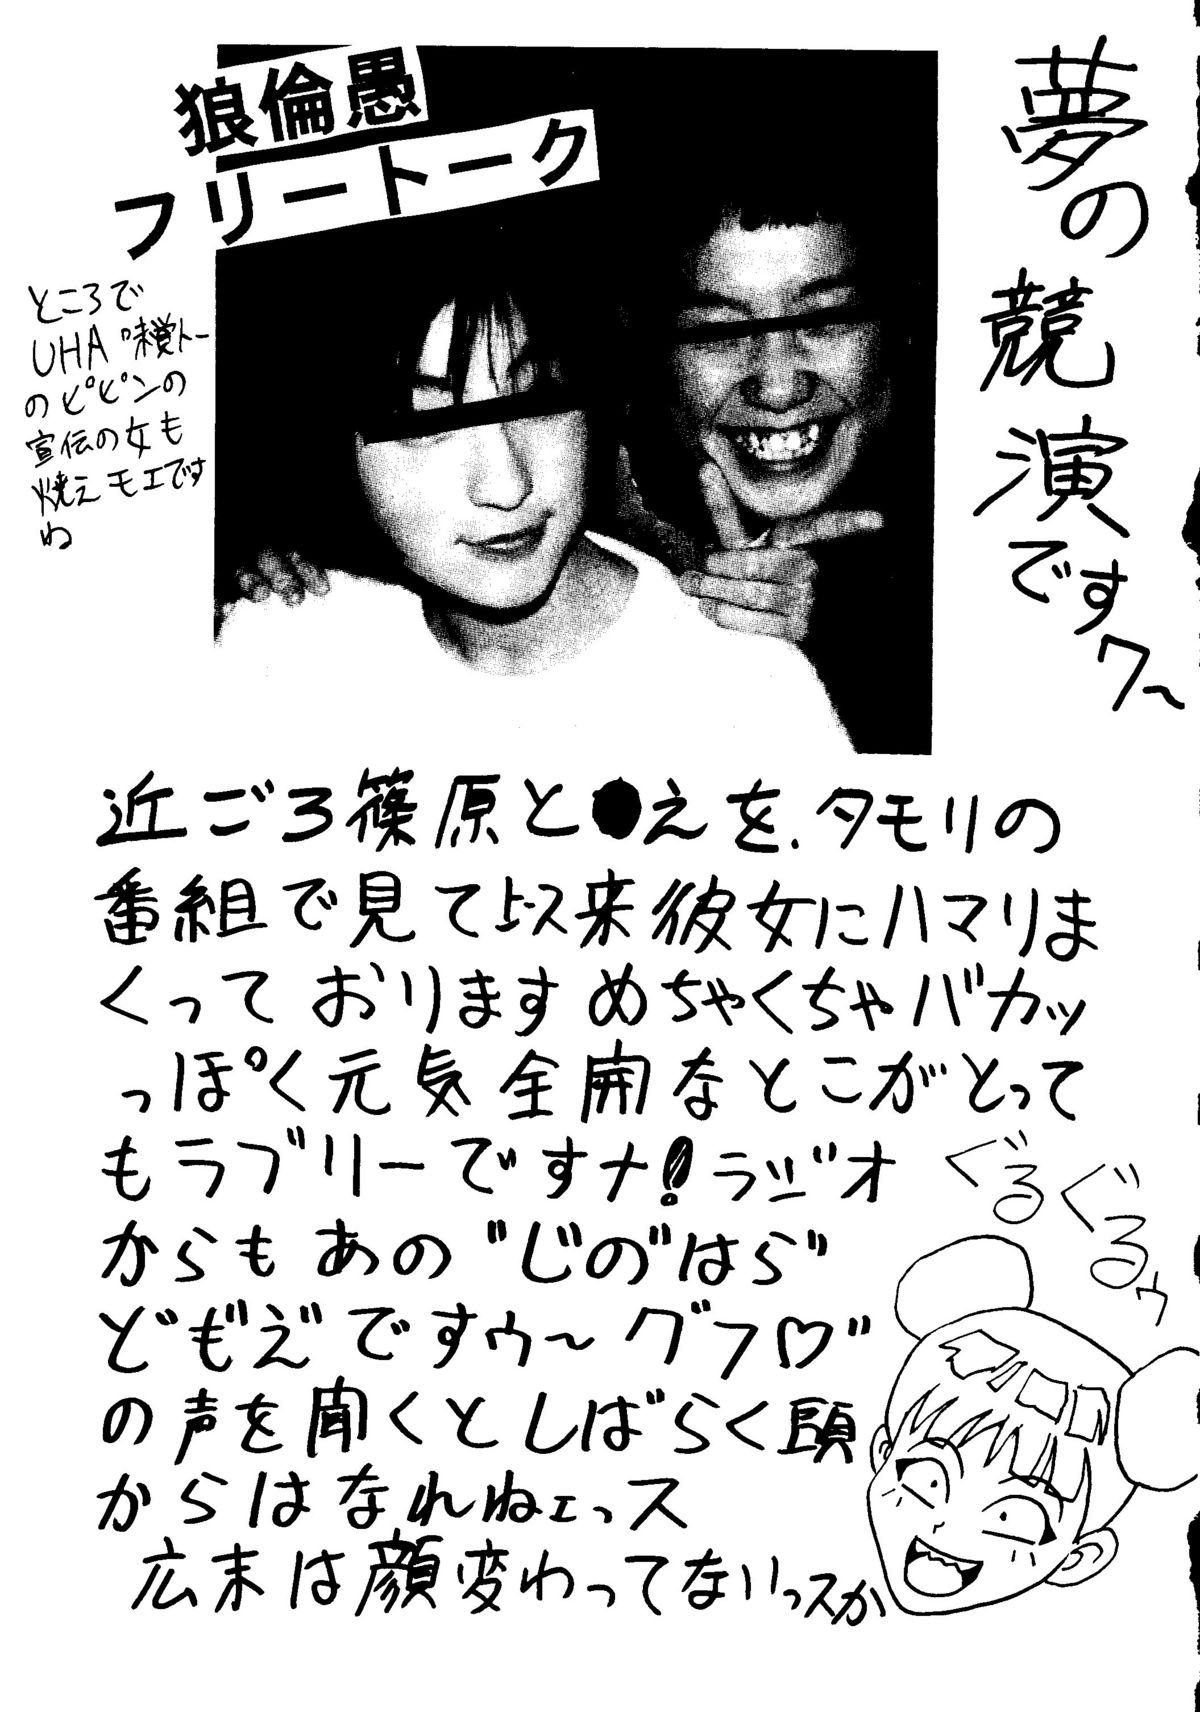 狼倫愚
フリートーク
夢の競演ですワ〜
ところで
UHA味覚トー
のピピンの
宣伝の女も
焼えモエです
ね
近ごろ篠原と●えを、タモリの
番組で見て以来彼女にハマリま
くっております めちゃくちゃバカッ
っぽく元気全開なとこがとって
もラブリーですナ!ラジオ
からも あの“じの゛はら゛
ども゛え゛ですゥ〜グフ♡゛
の声を聞くとしばらく頭
からはなれねェっス
広末は顔変わってないっスか
ぐるぐるゥ